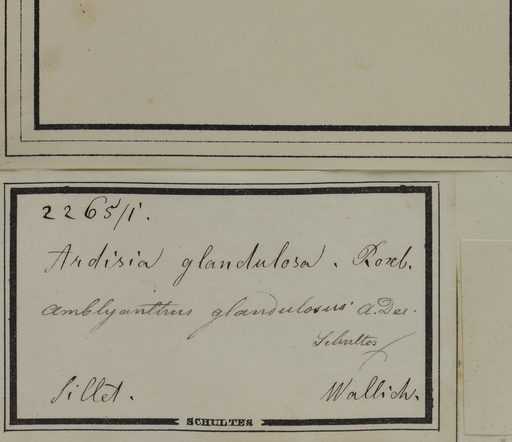 2265/1.
Ardisia glandulosa. Roxb.
Amblyanthus glandulosus A. Dec.
Schultes
Sillet.
Wallich.
SCHULTES